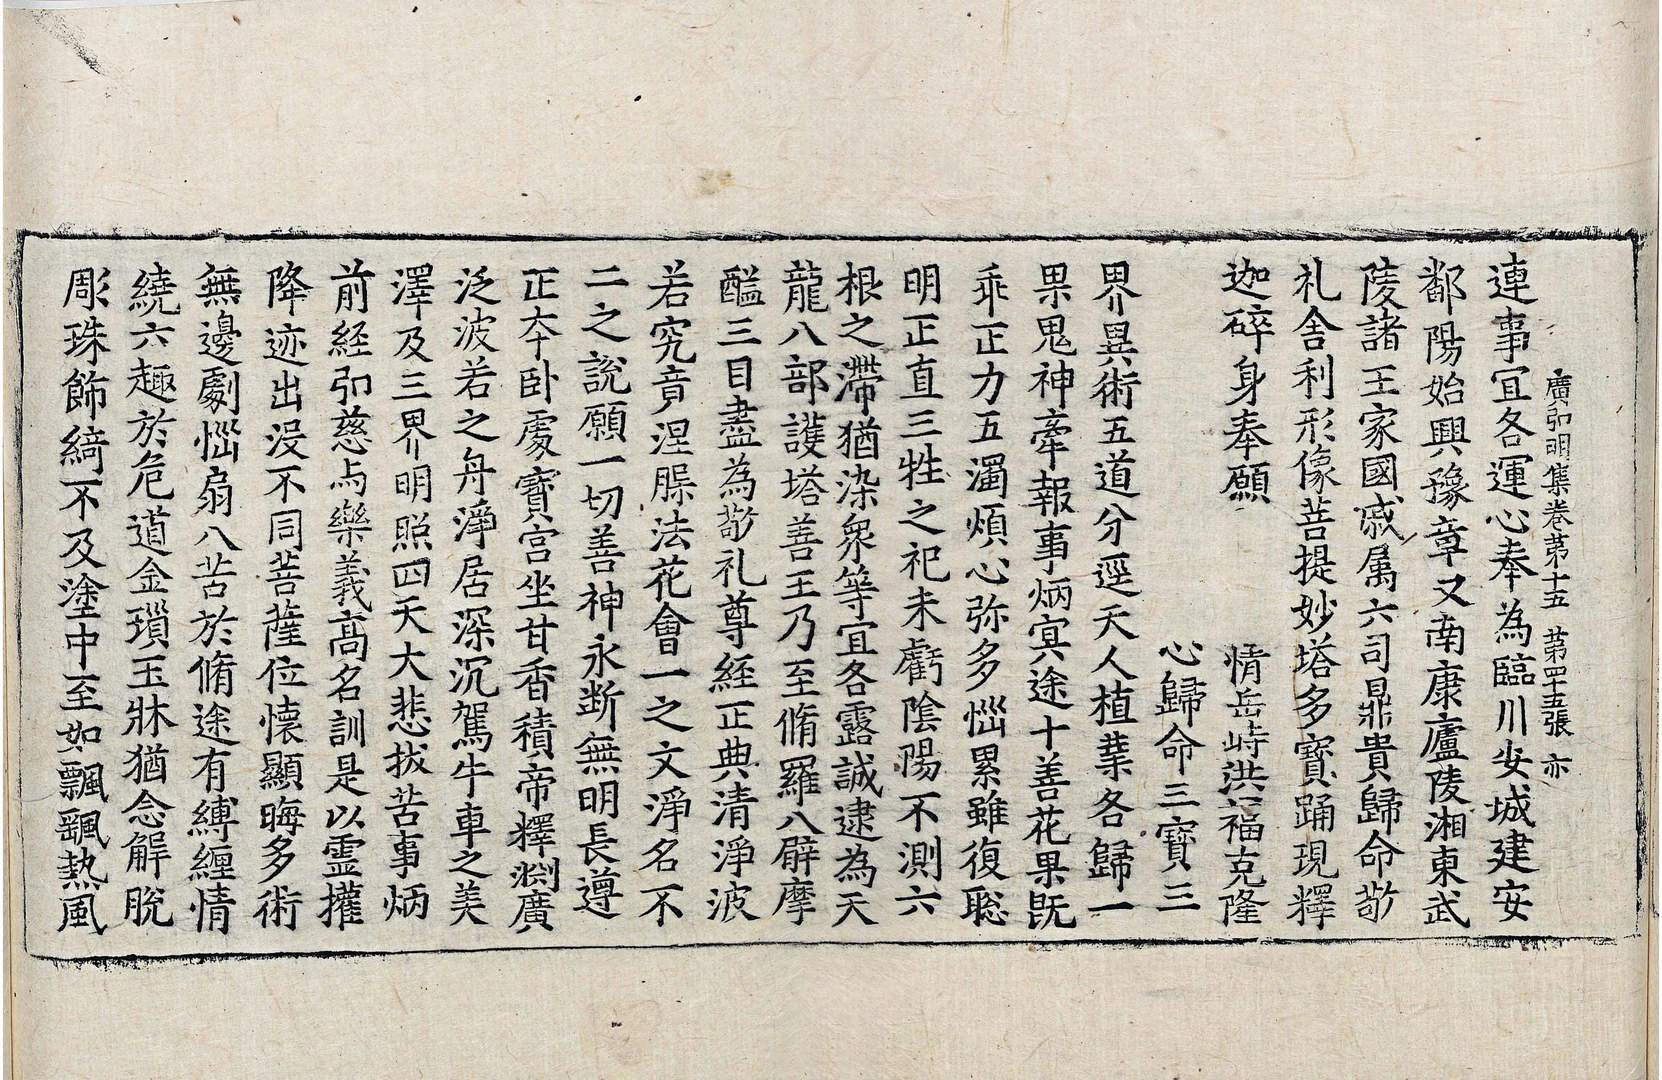 廣弘明集卷第十五 第四十五張 亦
連事宜各運心奉為臨川安城建安
鄱陽始興豫章又南康廬陵湘東武
陵諸王家國戚属六司鼎貴歸命敬
礼舍利形像菩提妙塔多寳踊現釋
迦碎身奉願
情岳峙洪福克隆
心歸命三寳三
界異術五道分逕天人植業各歸一
果鬼神牽報事炳冥途十善花果既
乖正力五濁煩心弥多惱累雖復聡
明正直三牲之祀未虧陰陽不測六
根之滯猶染衆等宜各露誠逮為天
龍八部護塔善王乃至脩羅八臂摩
醯三目盡為敬礼尊經正典清淨波
若究竟涅槃法花會一之文淨名不
二之說願一切善神永断無明長遵
正夲卧處寳宫坐甘香積帝釋渕廣
泛波若之舟淨居深沉駕牛車之美
澤及三界明照四天大悲拔苦事炳
前経弘慈与樂義髙名訓是以霊擁
降迹出没不同菩薩位懐顯晦多術
無邊劇惱扇八苦於脩途有縛纏情
繞六趣於危道金瑣玉牀猶念解脫
彫珠飾綺不及塗中至如飄颻熱風